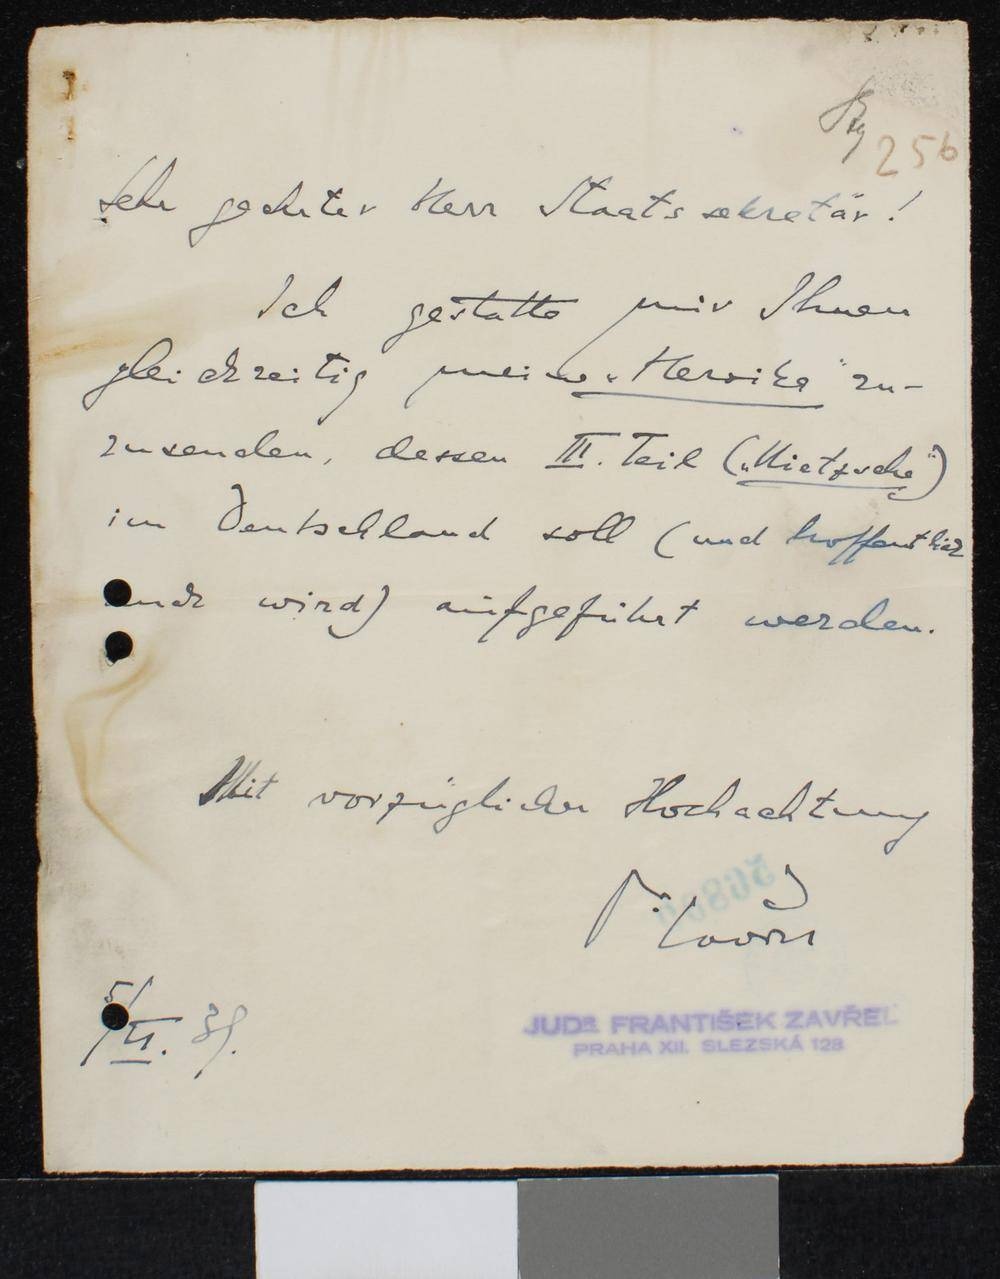 256
Sehr geehrter Herr Staatssekretär!
Ich gestatte mir Ihnen
gleichzeitig meine „Heroika" zu-
zusenden, dessen III. Teil („Nietzsche")
im Deutschland soll (und hoffentlich
auch wird) aufgeführt werden.
Mit vorzüglicher Hochachtung
JUDR FRANTIŠEK ZAVŘEL
PRAHA XII. SLEZSKÁ 128